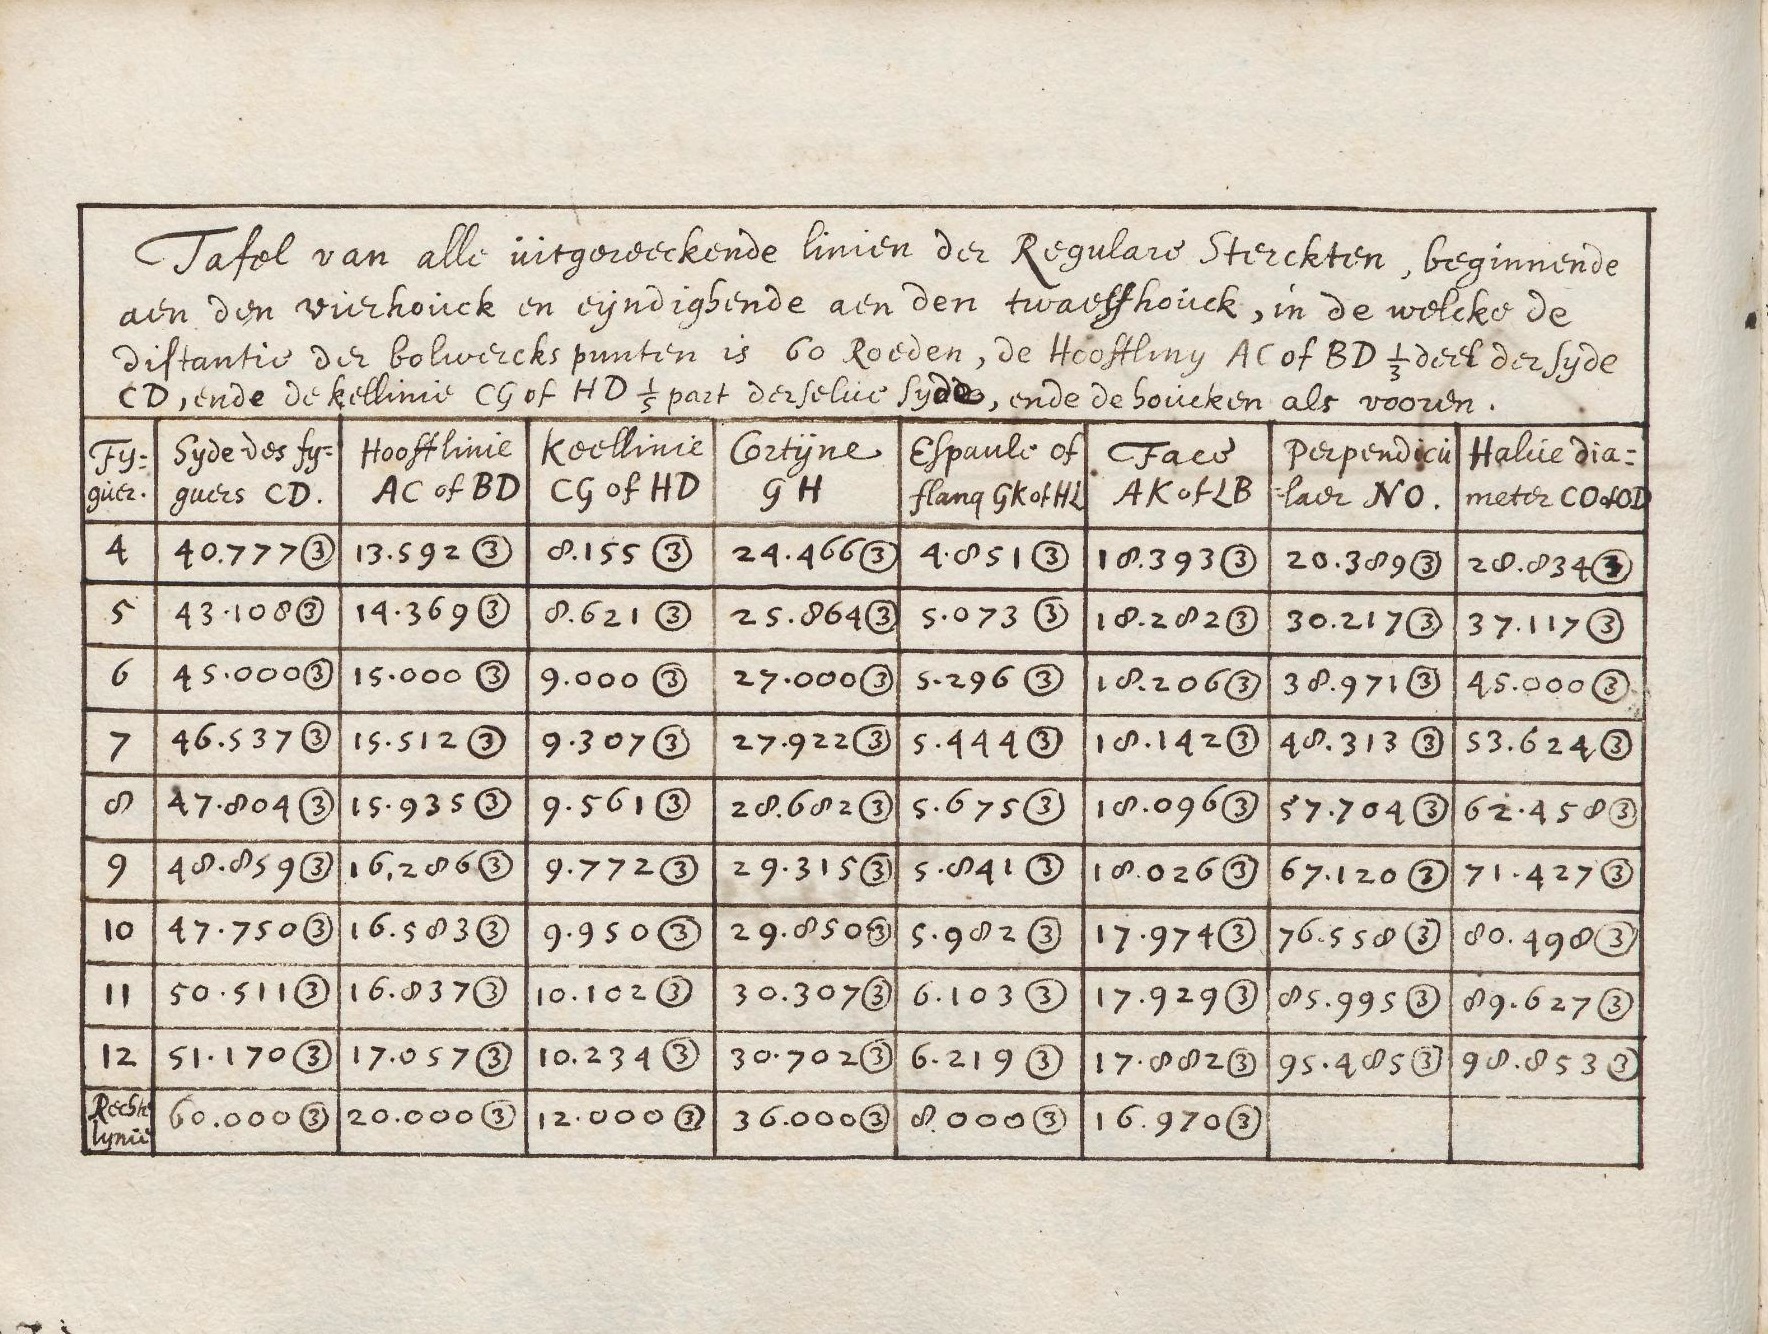 Tafel van alle uitgereeckende linien der Regulare Sterckten, beginnende
aen den vierhouck en eijndighende aen den twaelfhouck, in de welcke de
distantie der bolwercks punten is 60 Roeden, de Hooftliny AC of BD 1/3 deel der syde
CD, ende de kellinie CG of HD 1/5 part derselue syde, ende de houcken als vooren.
Fy= guer. | Syde des fy= guers CD. | Hooftlinie AC of BD | Keellinie CG of HD | Cortijne GH | Espaule of flanq GK of HL | Face AK of LB | Perpendicu =laer NO. | Halue dia= meter CO of OD
4 | 40.777③ | 13.592③ | 8.155③ | 24.466③ | 4.851③ | 18.393③ | 20.389③ | 28.834③
5 | 43.108③ | 14.369③ | 8.621③ | 25.864③ | 5.073③ | 18.282③ | 30.217③ | 37.117③
6 | 45.000③ | 15.000③ | 9.000③ | 27.000③ | 5.296③ | 18.206③ | 38.971③ | 45.000③
7 | 46.537③ | 15.512③ | 9.307③ | 27.922③ | 5.444③ | 18.142③ | 48.313③ | 53.624③
8 | 47.804③ | 15.935③ | 9.561③ | 28.682③ | 5.675③ | 18.096③ | 57.704③ | 62.458③
9 | 48.859③ | 16,286③ | 9.772③ | 29.315③ | 5.841③ | 18.026③ | 67.120③ | 71.427③
10 | 47.750③ | 16.583③ | 9.950③ | 29.850③ | 5.982③ | 17.974③ | 76.558③ | 80.498③
11 | 50.511③ | 16.837③ | 10.102③ | 30.307③ | 6.103③ | 17.929③ | 85.995③ | 89.627③
12 | 51.170③ | 17.057③ | 10.234③ | 30.702③ | 6.219③ | 17.882③ | 95.485③ | 98.853③
Rechte lynie | 60.000③ | 20.000③ | 12.000③ | 36.000③ | 8.000③ | 16.970③